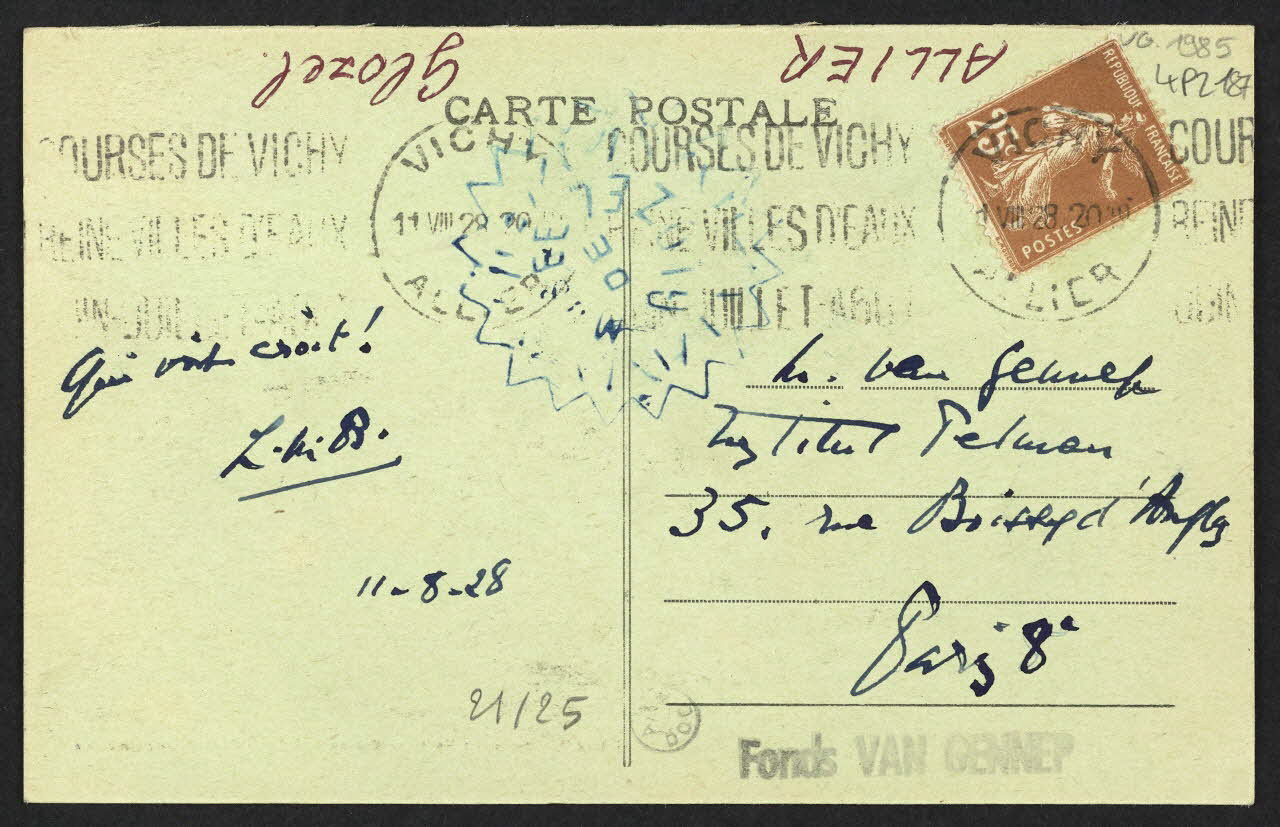 VG. 1985
4P2 187
ALLIER
Glozel
CARTE POSTALE
REPUBLIQUE FRANÇAISE
25c
POSTES
COURSES DE VICHY
REINE VILLES D'EAUX
JUIN-JUILLET-AOUT
VICHY
11 VIII 28 20
ALLIER
COURSES DE VICHY
REINE VILLES D'EAUX
JUILLET-AOUT
VICHY
VIII 28 20
ALLIER
COUR
REINE
JUIN
Qui vit croit!
11-8-28
M. van Gennep
Institut Pelman
35, rue Boissy d'Anglas
Paris 8e
21/25
DOC
Fonds VAN GENNEP